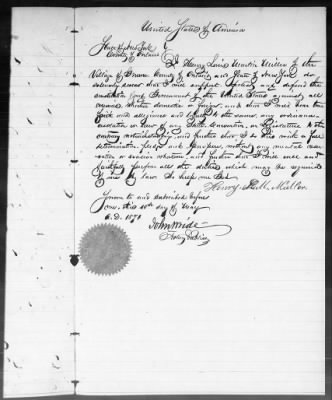 United States of America
State of New York
County of Ontario
I Henry Louis Martin Müller of the
Village of County of Ontario and State of New York do
solemnly swear that I will support protect and defend the
constitution and Government of the United States against all
enemies whether domestic or foreign, and that I will bear true
faith and allegiance and loyalty to the same, any ordinance
resolution or law of any State Convention, or Legislature to the
contrary notwithstanding, and further that I do this with a full
determination, pledge and purpose, without any mental reser-
vation or evasion whatever, and further that I will well and
faithfully perform all the duties which may be required
of me by law So help me God
Henry Müller
Sworn to and subscribed before
me, this 10th day of May
A.D. 1871
John Wride
Notary Public